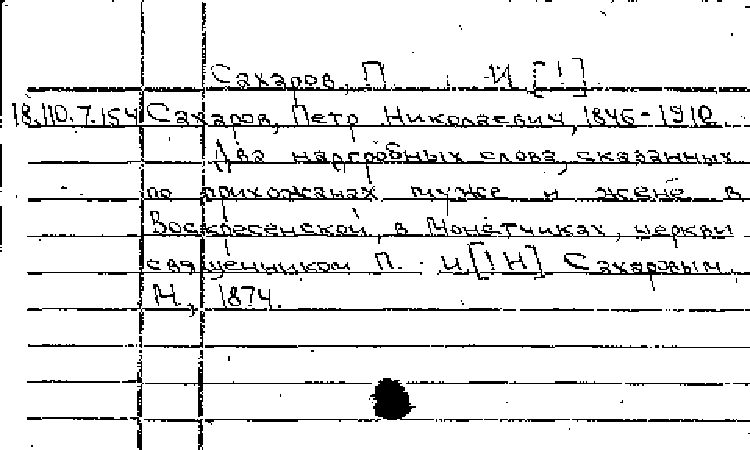 Сахаров, П. И [!]
18.110.7.154 Сахаров, Петр Николаевич, 1846-1910.
Два надгробных слова, сказанных
по прихожанах муже и жене в
Воскресенской, в Монетчиках, церкви
священником П. И [! Н] Сахаровым.
М., 1874.